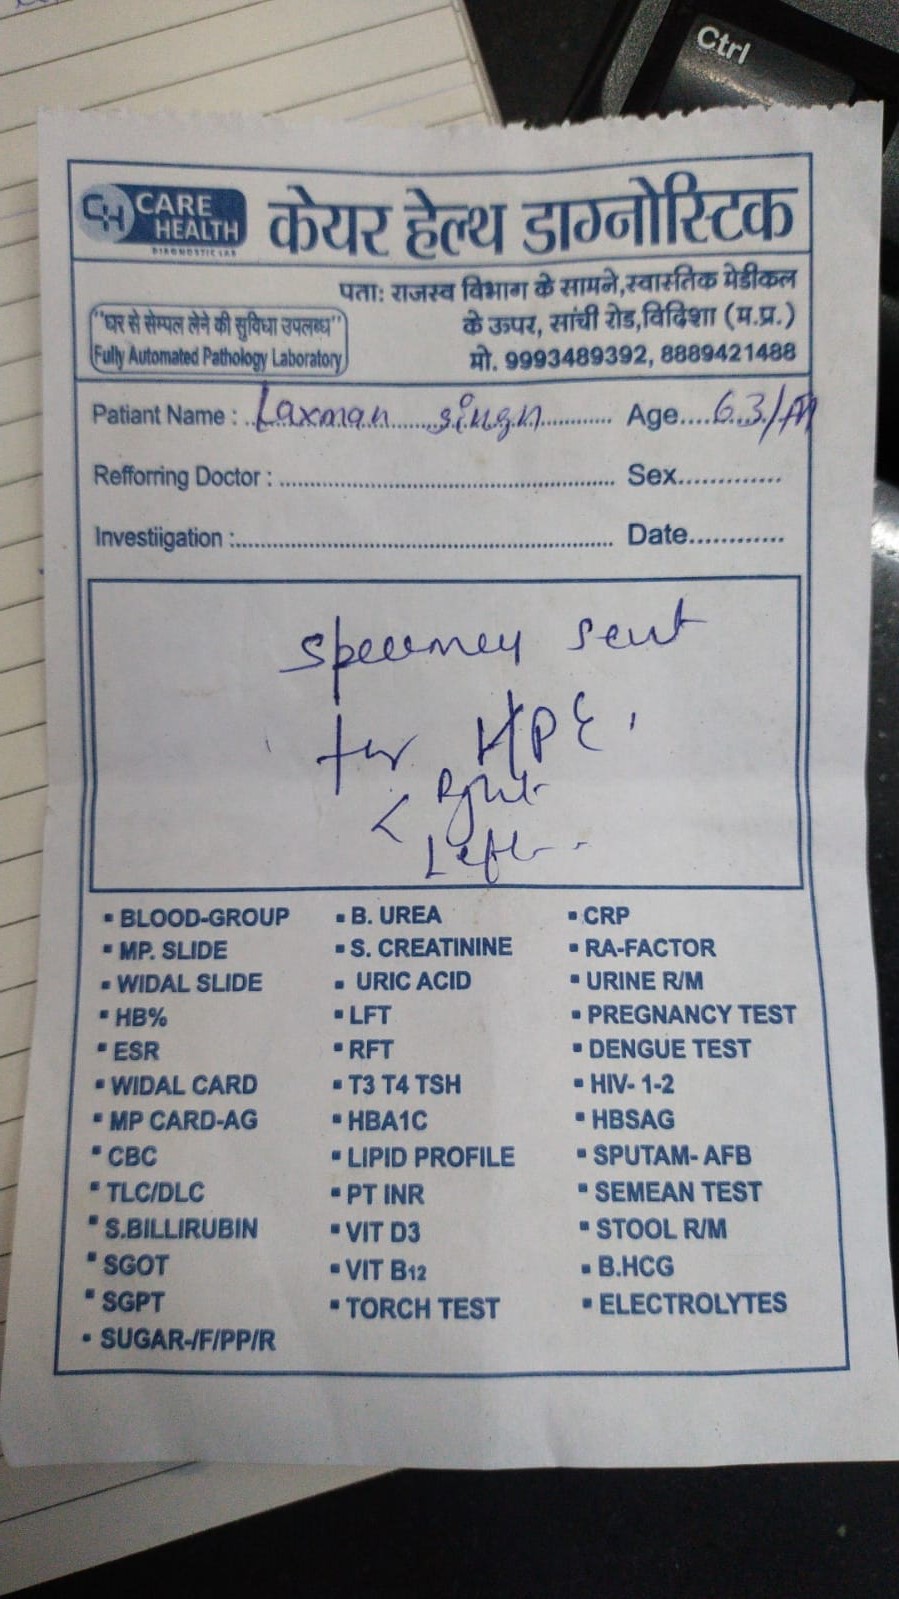 Ctrl
CH CARE HEALTH DIAGNOSTIC LAB
केयर हेल्थ डाग्नोस्टिक
पता: राजस्व विभाग के सामने,स्वास्तिक मेडीकल
के ऊपर, सांची रोड,विदिशा (म.प्र.)
मो. 9993489392, 8889421488
"घर से सेम्पल लेने की सुविधा उपलब्ध"
Fully Automated Pathology Laboratory
Patiant Name : Laxman singh Age 63/M
Refforring Doctor : Sex
Investiigation : Date
Specimen sent
for HPE.
< Right
Left
BLOOD-GROUP B. UREA CRP
MP. SLIDE S. CREATININE RA-FACTOR
WIDAL SLIDE URIC ACID URINE R/M
HB% LFT PREGNANCY TEST
ESR RFT DENGUE TEST
WIDAL CARD T3 T4 TSH HIV- 1-2
MP CARD-AG HBA1C HBSAG
CBC LIPID PROFILE SPUTAM- AFB
TLC/DLC PT INR SEMEAN TEST
S.BILLIRUBIN VIT D3 STOOL R/M
SGOT VIT B12 B.HCG
SGPT TORCH TEST ELECTROLYTES
SUGAR-/F/PP/R